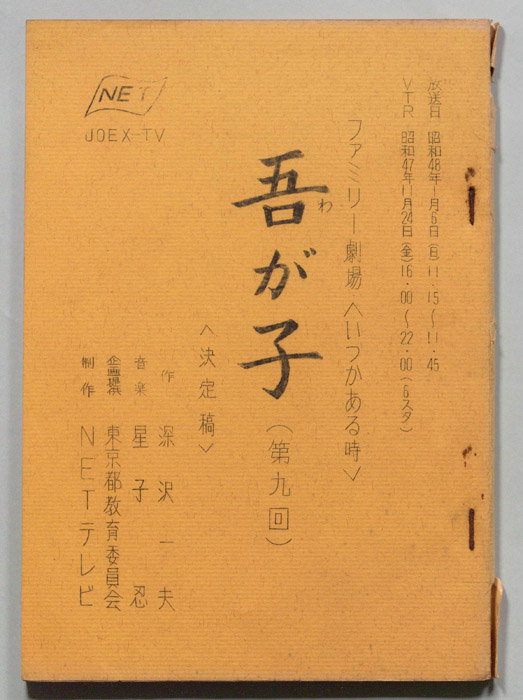 放送日 昭和48年1月6日(日)11・15〜11・45
VTR 昭和47年11月24日(金)16・00〜22・00(6スタ)
ファミリー劇場・〈いつかある時〉
吾が子(第九回)
わ
〈決定稿〉
作 深沢一夫
音楽 星子忍
企画提携 東京都教育委員会
制作 NETテレビ
NET
JOEX-TV